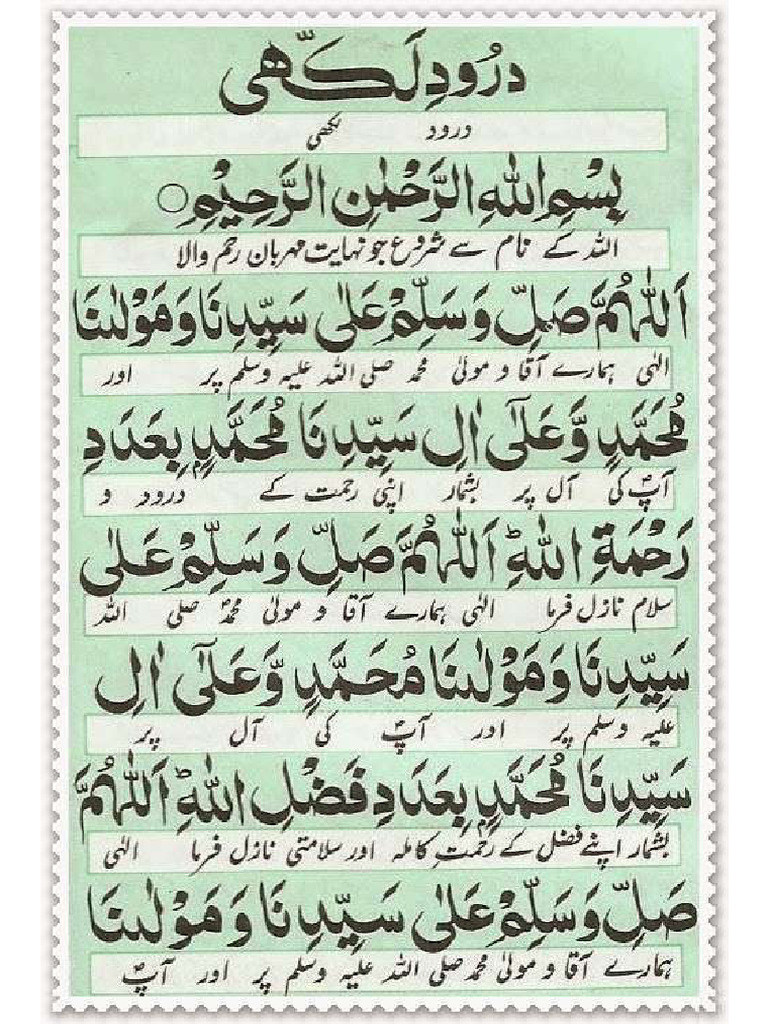 درُودِ لَکھّی
درود لکھی
بِسْمِ اللهِ الرَّحْمٰنِ الرَّحِیْمِ ○
اللہ کے نام سے شروع جو نہایت مہربان رحم والا
اَللّٰهُمَّ صَلِّ وَسَلِّمْ عَلٰی سَیِّدِنَا وَمَوْلٰىنَا
الٰہی ہمارے آقا و مولیٰ محمد صلی اللہ علیہ وسلم پر اور
مُحَمَّدٍ وَّعَلٰٓی اٰلِ سَیِّدِنَا مُحَمَّدٍۭ بِعَدَدِ
آپؐ کی آل پر بشمار اپنی رحمت کے درود و
رَحْمَةِ اللهِؕ اَللّٰهُمَّ صَلِّ وَسَلِّمْ عَلٰی
سلام نازل فرما الٰہی ہمارے آقا و مولیٰ محمدؐ صلی اللہ
سَیِّدِنَا وَمَوْلٰىنَا مُحَمَّدٍ وَّعَلٰٓی اٰلِ
علیہ وسلم پر اور آپؐ کی آل پر
سَیِّدِنَا مُحَمَّدٍۭ بِعَدَدِ فَضْلِ اللهِؕ اَللّٰهُمَّ
بشمار اپنے فضل کے رحمتِ کاملہ اور سلامتی نازل فرما الٰہی
صَلِّ وَسَلِّمْ عَلٰی سَیِّدِنَا وَمَوْلٰىنَا
ہمارے آقا و مولیٰ محمد صلی اللہ علیہ وسلم پر اور آپؐ